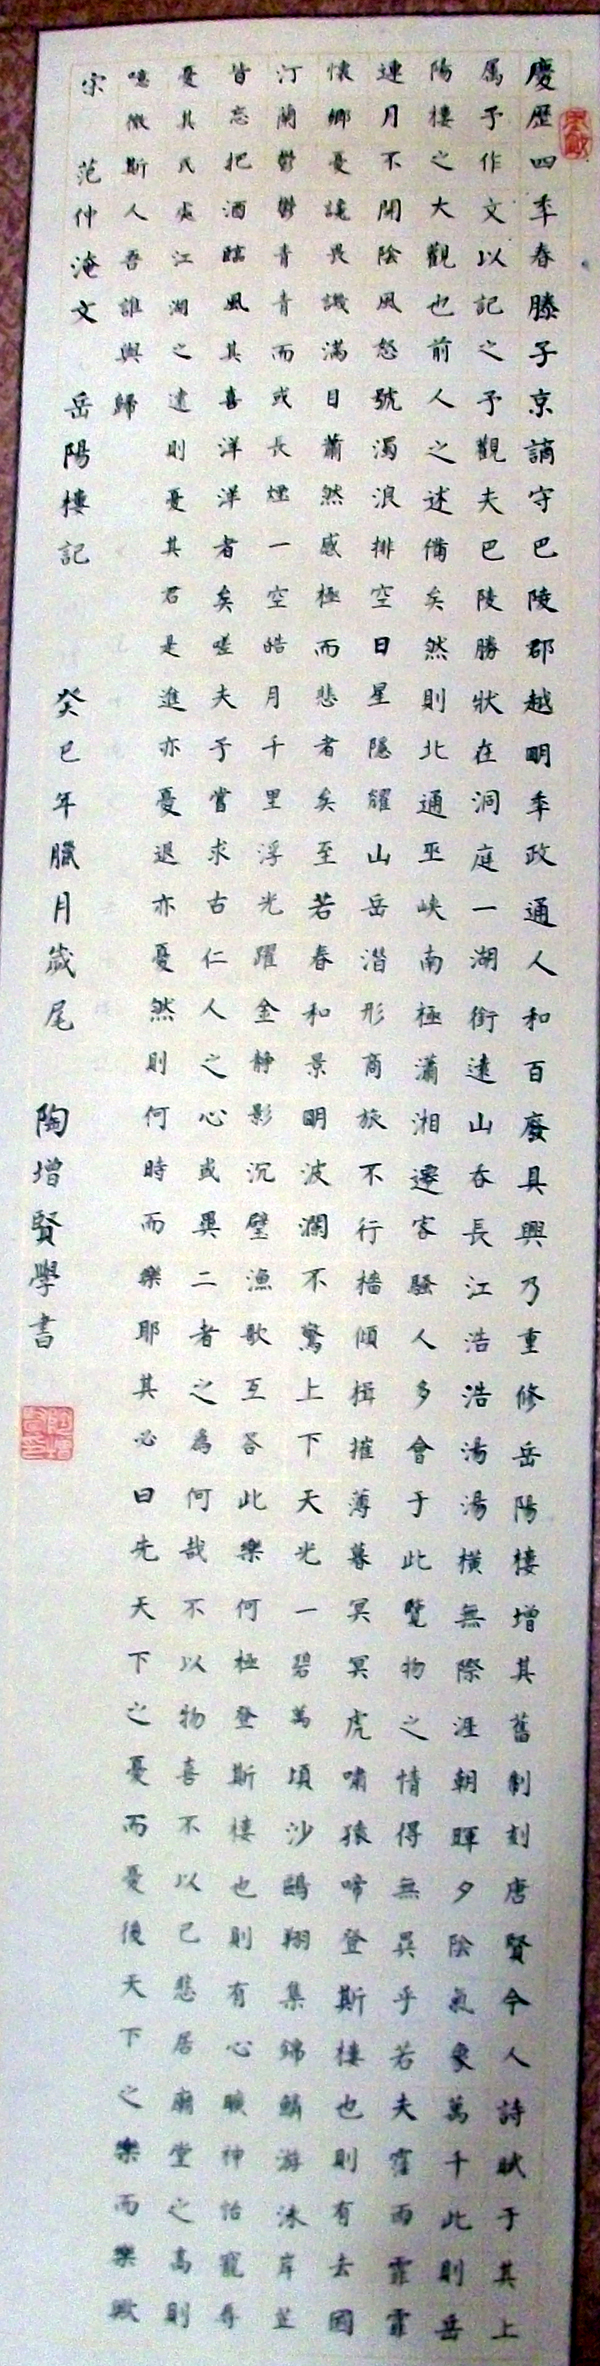 慶歷四秊春滕子京謫守巴陵郡越明秊政通人和百廢具興乃重修岳陽樓增其舊制刻唐賢今人詩賦于其上
属予作文以記之予觀夫巴陵勝狀在洞庭一湖銜遠山吞長江浩浩湯湯橫無際涯朝暉夕陰氣象萬千此則岳
陽樓之大觀也前人之述備矣然則北通巫峽南極瀟湘遷客騷人多會于此覽物之情得無異乎若夫霪雨霏霏
連月不開陰風怒號濁浪排空日星隱耀山岳潛形商旅不行檣傾楫摧薄暮冥冥虎嘯猿啼登斯樓也則有去國
懷鄉憂讒畏譏滿目蕭然感極而悲者矣至若春和景明波瀾不驚上下天光一碧萬頃沙鷗翔集錦鱗游泳岸芷
汀蘭鬱鬱青青而或長煙一空皓月千里浮光躍金靜影沉璧漁歌互答此樂何極登斯樓也則有心曠神怡寵辱
皆忘把酒臨風其喜洋洋者矣嗟夫予嘗求古仁人之心或異二者之為何哉不以物喜不以己悲居廟堂之高則
憂其民處江湖之遠則憂其君是進亦憂退亦憂然則何時而樂耶其必曰先天下之憂而憂後天下之樂而樂歟
噫微斯人吾誰與歸
宋 范仲淹文 岳陽樓記 癸巳年臘月歲尾 陶增賢學書